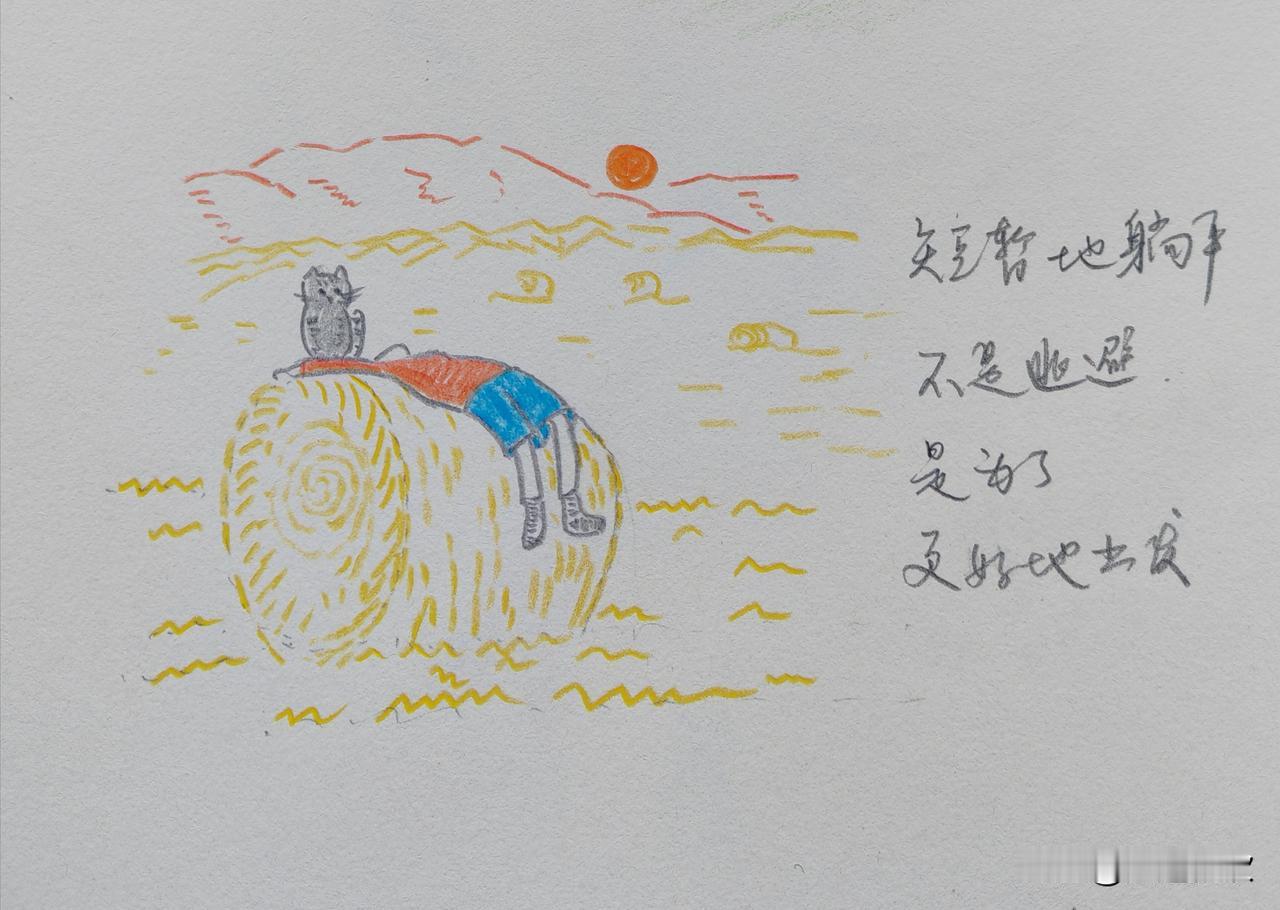 短暂地躺平
不是逃避.
是为了
更好地出发